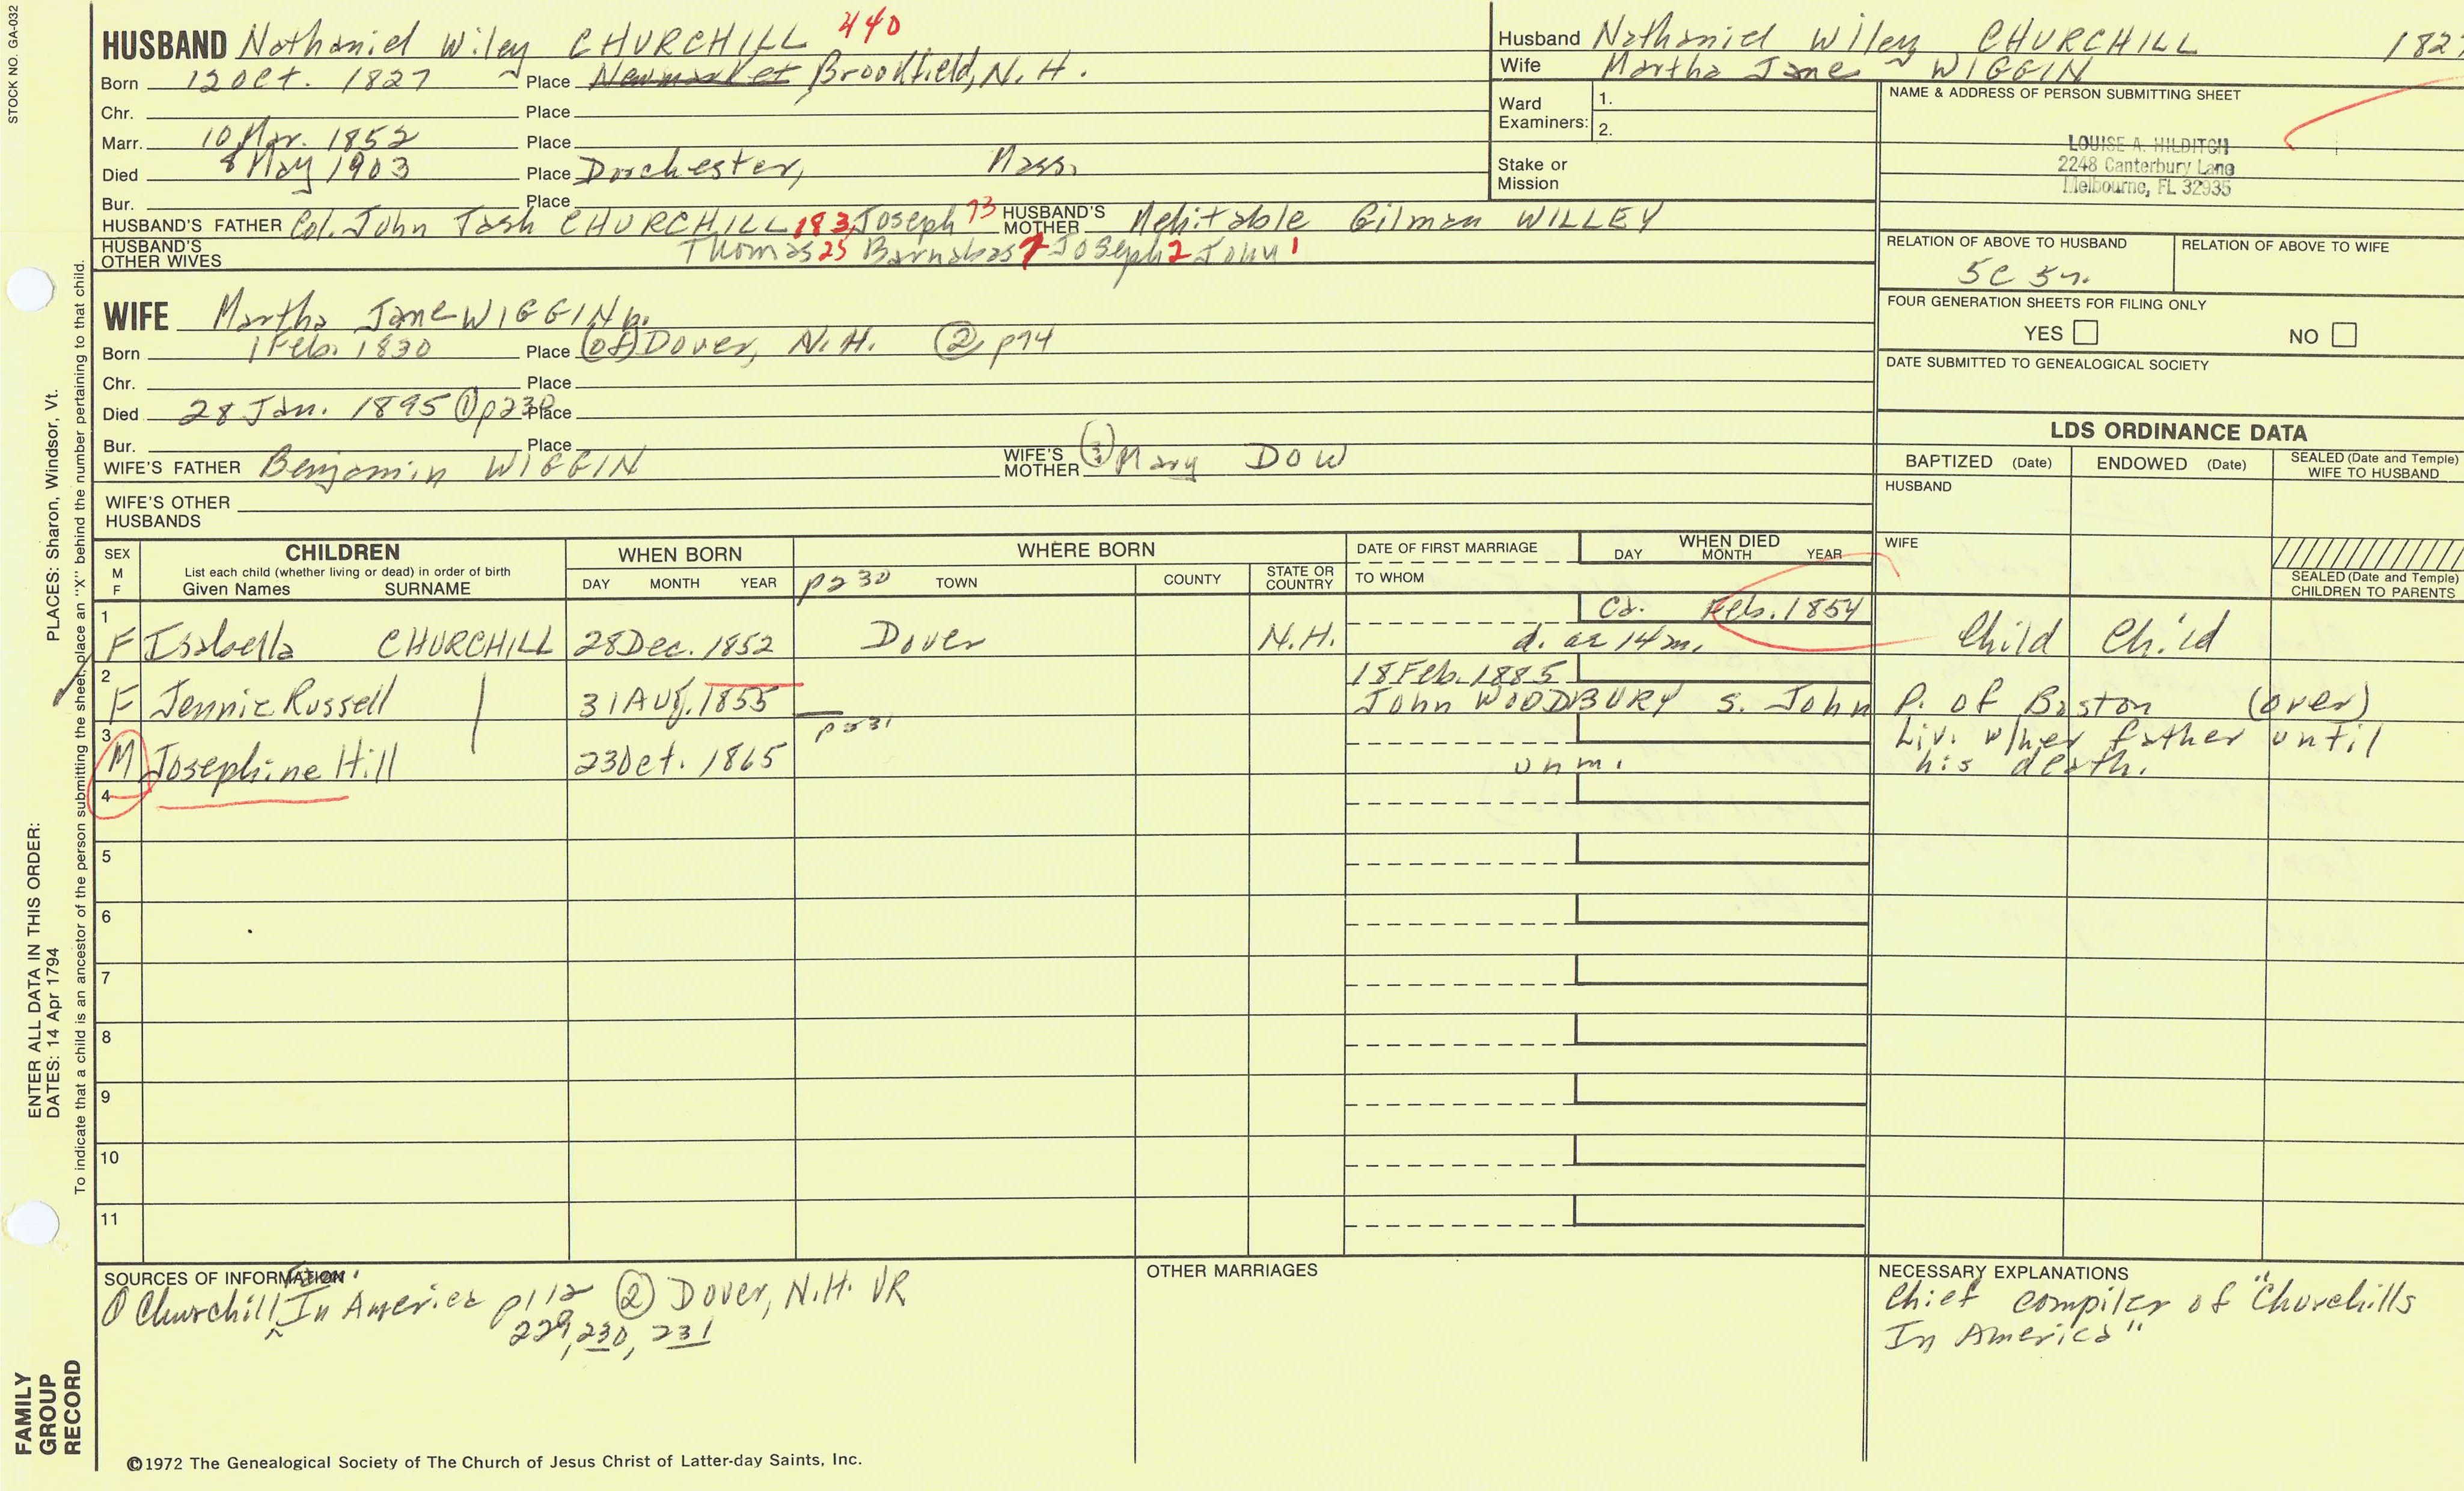 STOCK NO. GA-032
HUSBAND Nathaniel Wiley CHURCHILL 440
Born 12 Oct. 1827 Place Newmarket Brookfield, N.H.
Chr. Place
Marr. 10 Mar. 1852 Place
Died 8 May 1903 Place Dorchester, Mass.
Bur. Place
HUSBAND'S FATHER Col. John Tash CHURCHILL 183, Joseph 73 HUSBAND'S MOTHER Mehitable Gilman WILLEY
HUSBAND'S OTHER WIVES Thomas 25 Barnabas 7 Joseph 2 John 1
WIFE Martha Jane WIGGIN
Born 1 Feb. 1830 Place (of) Dover, N.H. ② p94
Chr. Place
Died 28 Jan. 1895 ① p230 Place
Bur. Place
WIFE'S FATHER Benjamin WIGGIN WIFE'S MOTHER Mary DOW
WIFE'S OTHER HUSBANDS
Husband Nathaniel Wiley CHURCHILL 1827
Wife Martha Jane WIGGIN
Ward Examiners: 1.
2.
Stake or Mission
NAME & ADDRESS OF PERSON SUBMITTING SHEET
LOUISE A. HILDITCH
2248 Canterbury Lane
Melbourne, FL 32935
RELATION OF ABOVE TO HUSBAND RELATION OF ABOVE TO WIFE
5C 5r.
FOUR GENERATION SHEETS FOR FILING ONLY
YES NO
DATE SUBMITTED TO GENEALOGICAL SOCIETY
LDS ORDINANCE DATA
BAPTIZED (Date) ENDOWED (Date) SEALED (Date and Temple) WIFE TO HUSBAND
HUSBAND
WIFE
SEALED (Date and Temple) CHILDREN TO PARENTS
SEX M F CHILDREN WHEN BORN WHERE BORN DATE OF FIRST MARRIAGE WHEN DIED
List each child (whether living or dead) in order of birth
Given Names SURNAME DAY MONTH YEAR p230 TOWN COUNTY STATE OR COUNTRY TO WHOM DAY MONTH YEAR
1 Ca. Feb. 1854
F Isabella CHURCHILL 28 Dec. 1852 Dover N.H. d. ae 14 m. Child Child
2 18 Feb. 1885
F Jennie Russell 31 Aug. 1855 John WOODBURY s. John P. of Boston (over)
3 p231 Liv. w/her father until
M Josephine Hill 23 Oct. 1865 unm. his death.
4
5
6
7
8
9
10
11
SOURCES OF INFORMATION
① Churchill Fam. In America p112 ② Dover, N.H. VR
229, 230, 231
OTHER MARRIAGES
NECESSARY EXPLANATIONS
Chief compiler of "Churchills
In America"
©1972 The Genealogical Society of The Church of Jesus Christ of Latter-day Saints, Inc.
FAMILY GROUP RECORD
ENTER ALL DATA IN THIS ORDER:
DATES: 14 Apr 1794
PLACES: Sharon, Windsor, Vt.
To indicate that a child is an ancestor of the person submitting the sheet, place an "X" behind the number pertaining to that child.